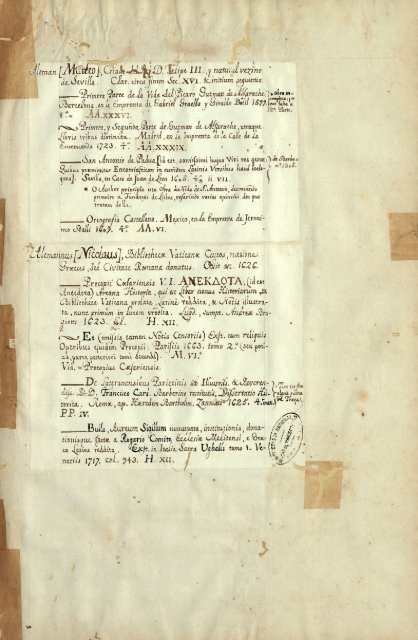 Aleman [Matteo], Criado del R. D. Felipe III. y natural vezino
de Sevilla. Clar. circa finem Sec. XVI. & initium sequentis.
— Primera Parte de la Vida del Picaro Guzman de Alfarache,
Barcelona, en la Emprenta de Gabriel Graells y Giraldo Dotil 1599.
8.º AA.XXXVI.
— Primera, y Segunda Parte de Guzman de Alfarache, utraque
libris tribus distincta. Madrid, en la Imprenta de la Calle de la
Encomienda 1723. 4.º AA.XXXIX.
— San Antonio de Padua
Sevilla, en Casa de Juan de Leon 1605. 4.º
O Author principia esta Obra da Vida de S. Antonio, discorrendo
primeiro a Fundaçaõ de Lisboa, referindo varias opinioens dos que
trataraõ della.
— Ortografia Castellana. Mexico, en la Emprenta de Jeroni-
mo Balli 1609. 4.º AA.VI.
Alemannus [Nicolaus], Bibliothecæ Vaticanæ Custos, natione
Græcus, sed Civitate Romana donatus. Obiit an. 1626.
— Procopii Cæsariensis V. I. ΑΝΕΚΔΟΤΑ, (id est
Anecdota) Arcana Historia, qui est Liber nonus Historiarum, ex
Bibliotheca Vaticana prolata, Latinè reddita, & Notis illustra-
ta, nunc primum in lucem prodita. Lugd., sumpt. Andreæ Bru-
giotti 1623. fol. H.XII.
— Et (omissis tamen Notis Censoriis) Exst. cum reliquis
Operibus ejusdem Procopii. Parisiis 1663. tomo 2.º (seu poti-
us parte posteriori tomi secundi) M.VI.º
Vid. Procopius Cæsariensis.
— De Lateranensibus Parietinis ab Illustriss. & Reveren-
diss. D. D. Francisco Card. Barberino restitutis, Dissertatio Hi-
storica. Romæ, ap. Hæredem Bartholom. Zannetti 1625. 4.º
PP.IV.
— Bulla, Aureum Sigillum nuncupata, institutionis, dona-
tionisque factæ a Rogerio Comite Ecclesiæ Militensi, e Græ-
co Latina reddita. Exst. in Italia Sacra Ughelli tomo 1. Ve-
netiis 1717. col. 943. H.XII.